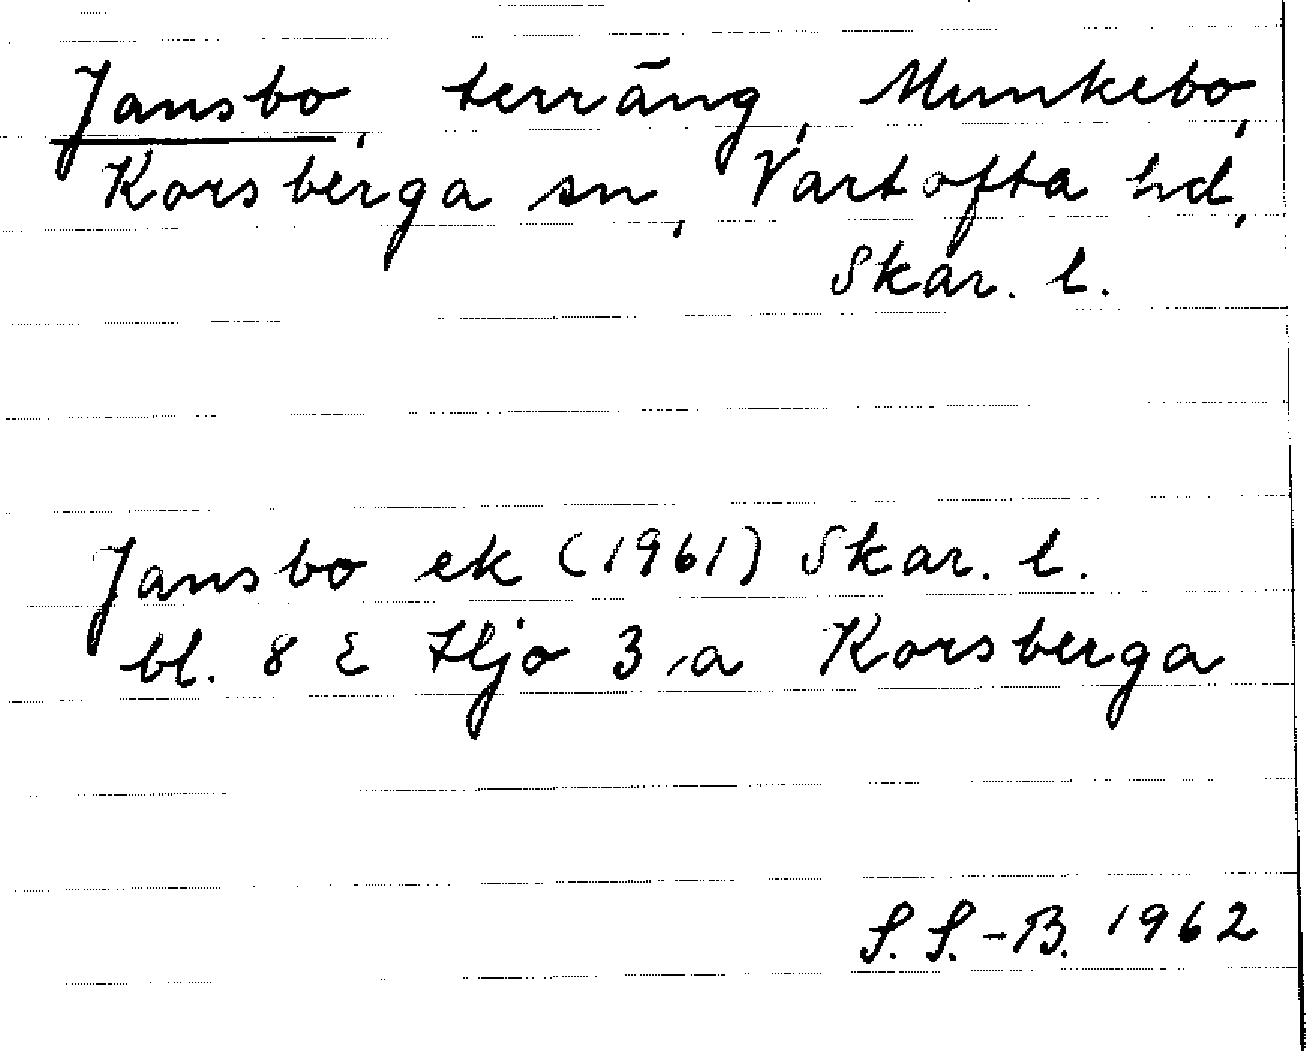 Jansbo, terräng, Munkebo,
Korsberga sn, Vartofta hd,
Skar. l.
Jansbo ek (1961) Skar. l.
bl. 8 E Hjo 3 a Korsberga
S. S.-B. 1962